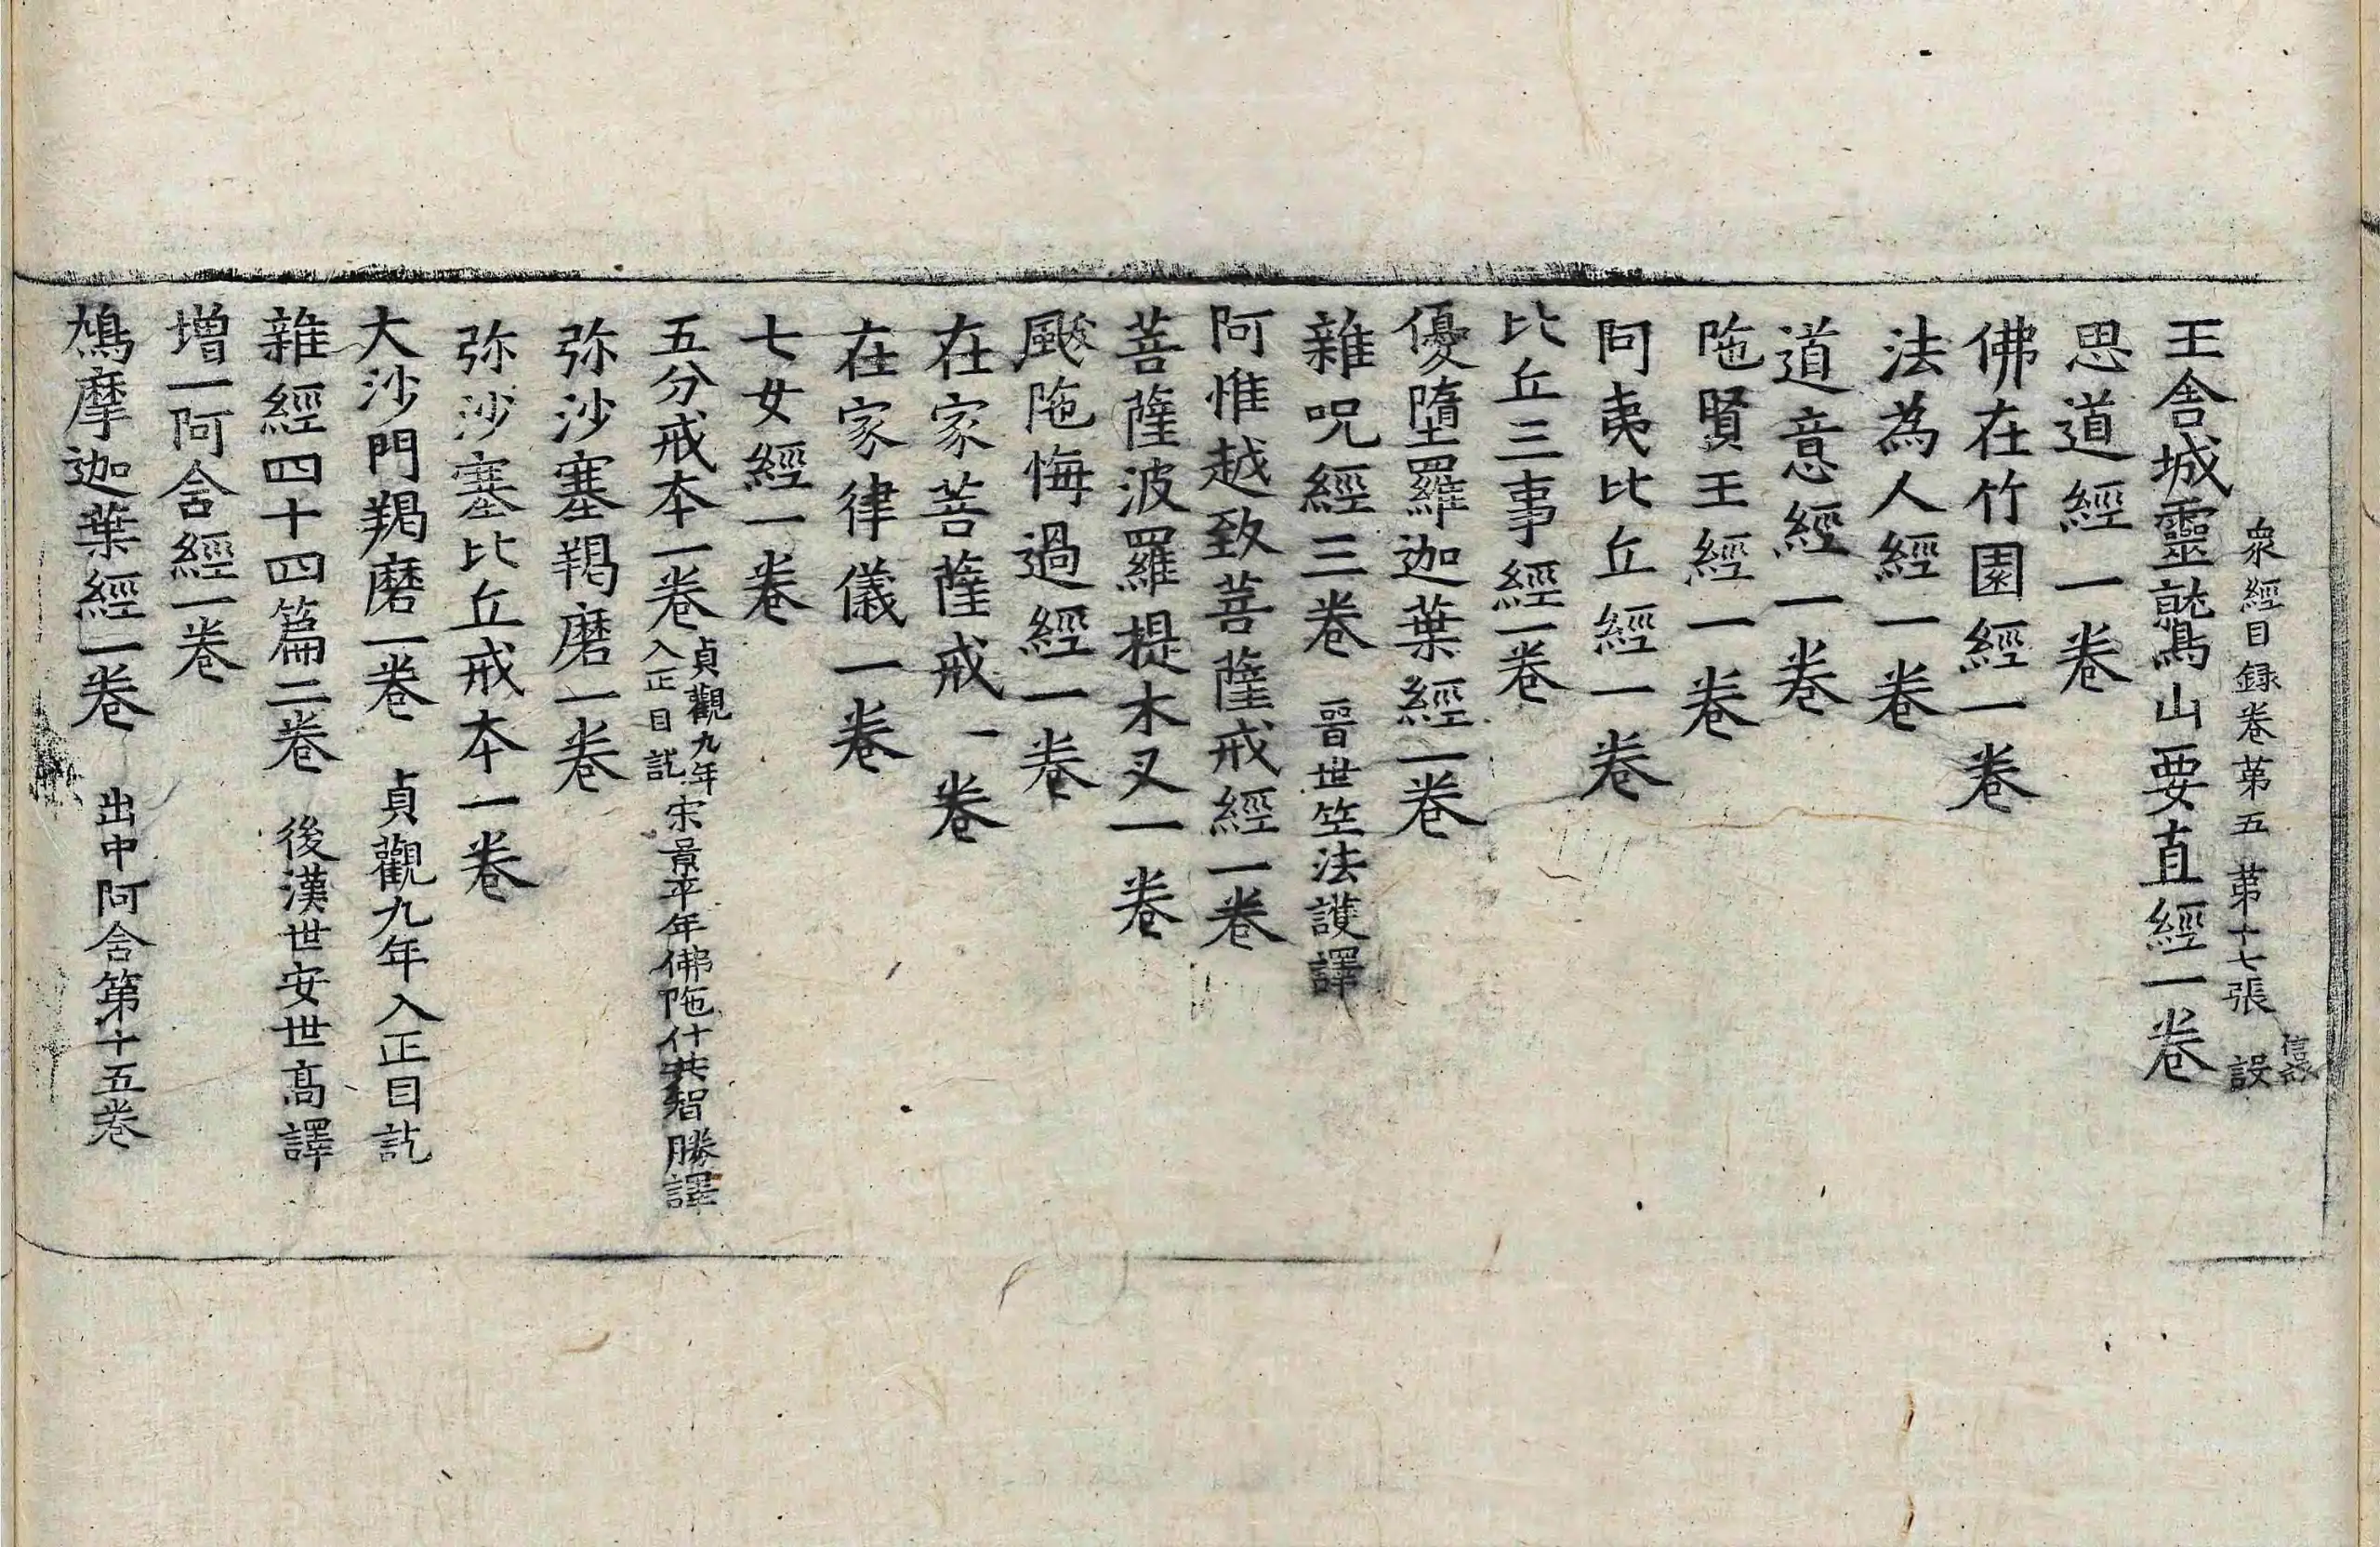 衆經目録卷第五 第十七張 設
王舎城靈鷲山要直經一卷
思道經一卷
佛在竹園經一卷
法為人經一卷
道意經一卷
陁賢王經一卷
阿夷比丘經一卷
比丘三事經一卷
優墮羅迦葉經一卷
雜呪經三卷 晉世竺法護譯
阿惟越致菩薩戒經一卷
菩薩波羅提木叉一卷
颰陁悔過經一卷
在家菩薩戒一卷
在家律儀一卷
七女經一卷
五分戒本一卷 貞觀九年入正目訖 宋景平年佛陁什共智勝譯
弥沙塞羯磨一卷
弥沙塞比丘戒本一卷
大沙門羯磨一卷 貞觀九年入正目訖
雜經四十四篇二卷 後漢世安世髙譯
增一阿含經一卷
鳩摩迦葉經一卷 出中阿含第十五卷